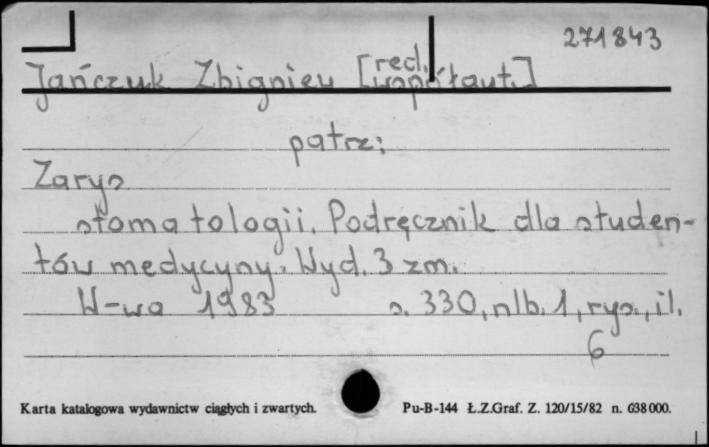 271843
Jańczuk Zbigniew [red. współaut.]
patrz:
Zarys
stomatologii. Podręcznik dla studen-
tów medycyny. Wyd. 3 zm.
W-wa 1983 s. 330, nlb. 1, rys., il.
6
Karta katalogowa wydawnictw ciągłych i zwartych. Pu-B-144 Ł.Z.Graf. Z. 120/15/82 n. 638000.